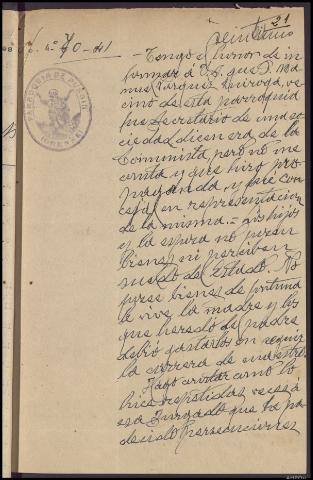 21
veintiuno
nº 40-41
PARROQUIA DE
ORENSE
Tengo el honor de in
formar á V.S. que D. Ra
Vazquez Quiroga, ve
cino de esta parroquia
fue Secretario de una so
ciedad, dicen era de la
Comunista, pero no me
consta y que hizo pro
paganda y fué con
cejal en representacion
de la misma.= Los hijos
y la esposa no poseen
bienes ni perciben
sueldo del Estado. No
posee bienes de fortuna
le vive la madre y los
que heredó del padre
debió gastarlos en seguir
la carrera de maestro.
Hago constar como lo
hice repetidas veces á
ese Juzgado que ha pa
decido persecuciones